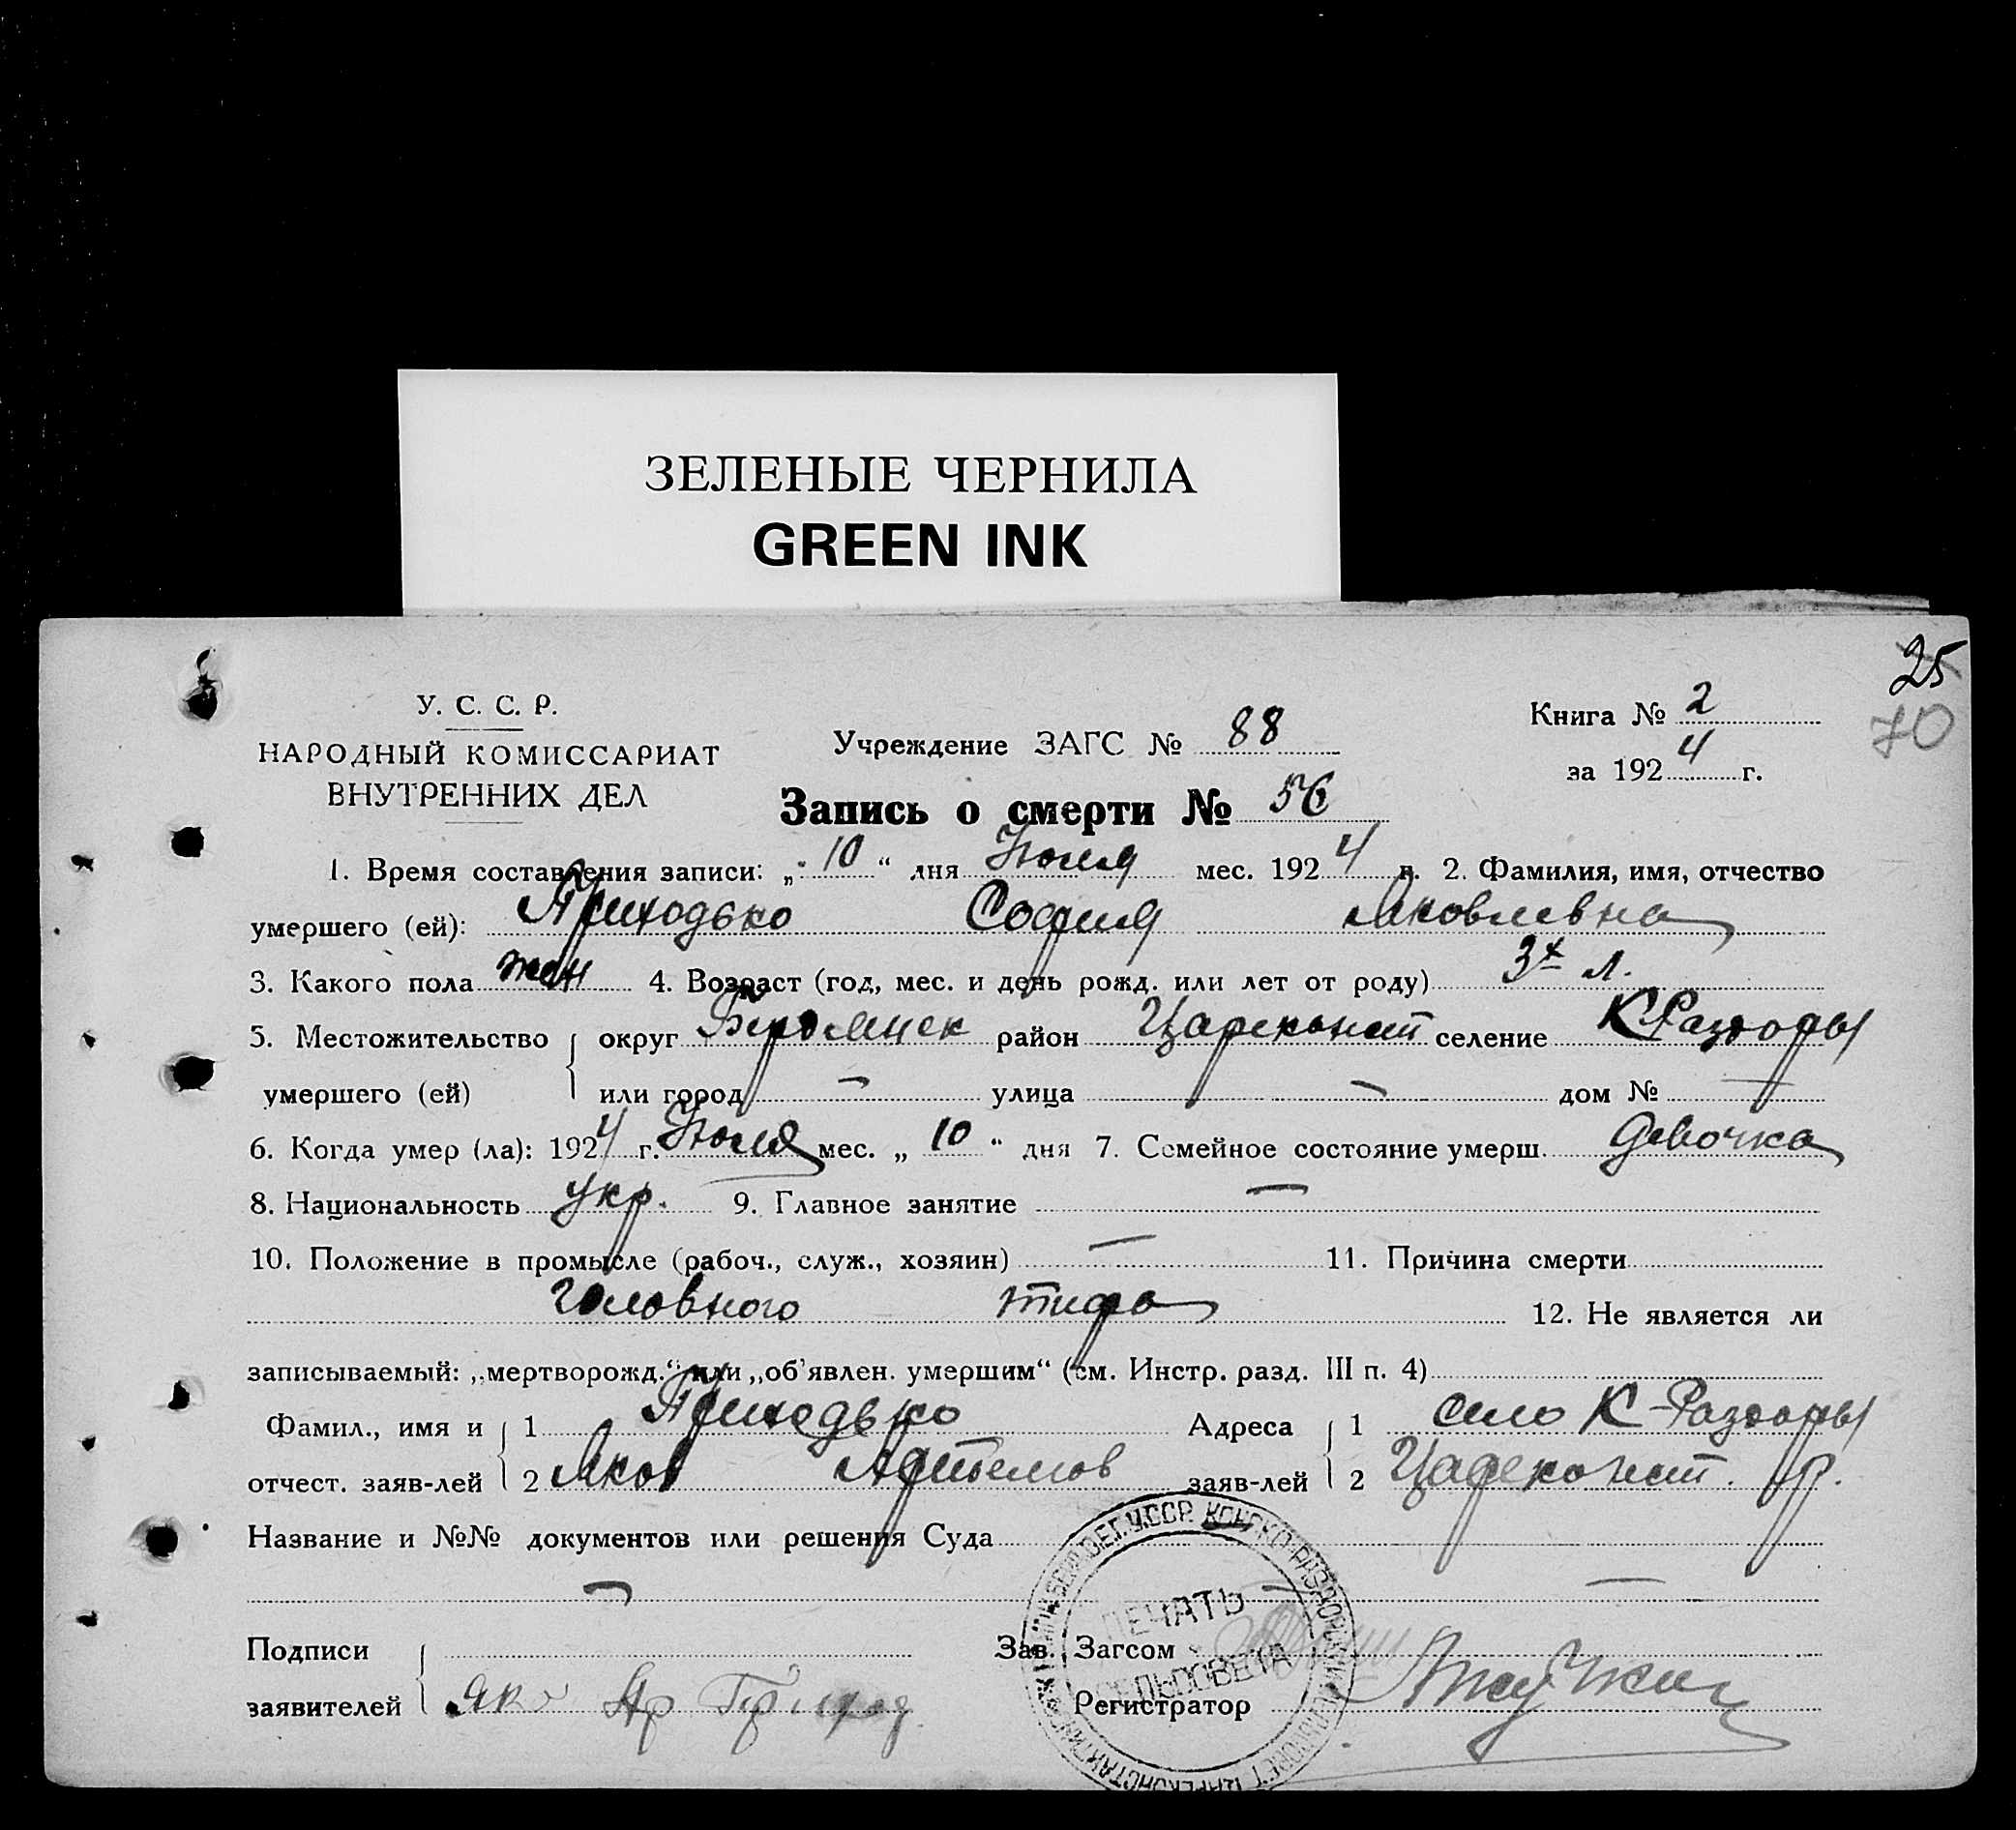 ЗЕЛЕНЫЕ ЧЕРНИЛА
GREEN INK
25
70
У. С. С. Р.
НАРОДНЫЙ КОМИССАРИАТ
ВНУТРЕННИХ ДЕЛ
Учреждение ЗАГС № 88
Книга № 2
за 1924 г.
Запись о смерти № 56
1. Время составления записи: „10“ дня Июля мес. 1924 г. 2. Фамилия, имя, отчество
умершего (ей): Приходько София Яковлевна
3. Какого пола жен 4. Возраст (год, мес. и день рожд. или лет от роду) 3х л.
5. Местожительство округ район Цареконст селение К-Раздоры
умершего (ей) или город — улица — дом № —
6. Когда умер (ла): 1924 г. Июля мес. „10“ дня 7. Семейное состояние умерш. девочка
8. Национальность укр. 9. Главное занятие —
10. Положение в промысле (рабоч., служ., хозяин) — 11. Причина смерти
головного тифа 12. Не является ли
записываемый: „мертворожд.“ или „об'явлен. умершим“ (см. Инстр. разд. III п. 4)
Фамил., имя и 1 Приходько Адреса 1 село К-Раздоры
отчест. заяв-лей 2 Яков Артемов заяв-лей 2 Цареконст. р.
Название и №№ документов или решения Суда
— —
Подписи Зав. Загсом
заявителей Яко Ар Приход Регистратор
ПЕЧАТЬ
СЕЛЬСОВЕТА